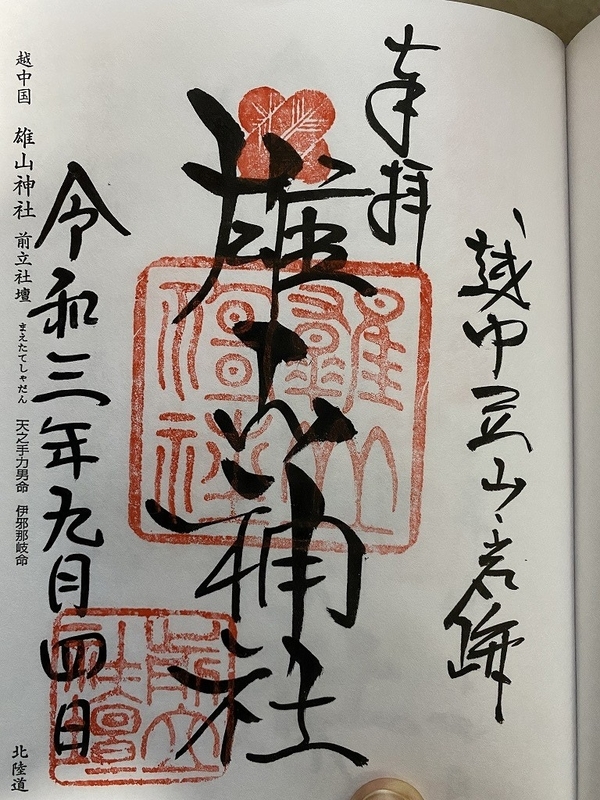 奉拝
越中立山岩峅
雄山神社
雄山神社
前立社壇
令和三年九月四日
越中国 雄山神社 前立社壇 まえたてしゃだん 天之手力男命 伊邪那岐命 北陸道